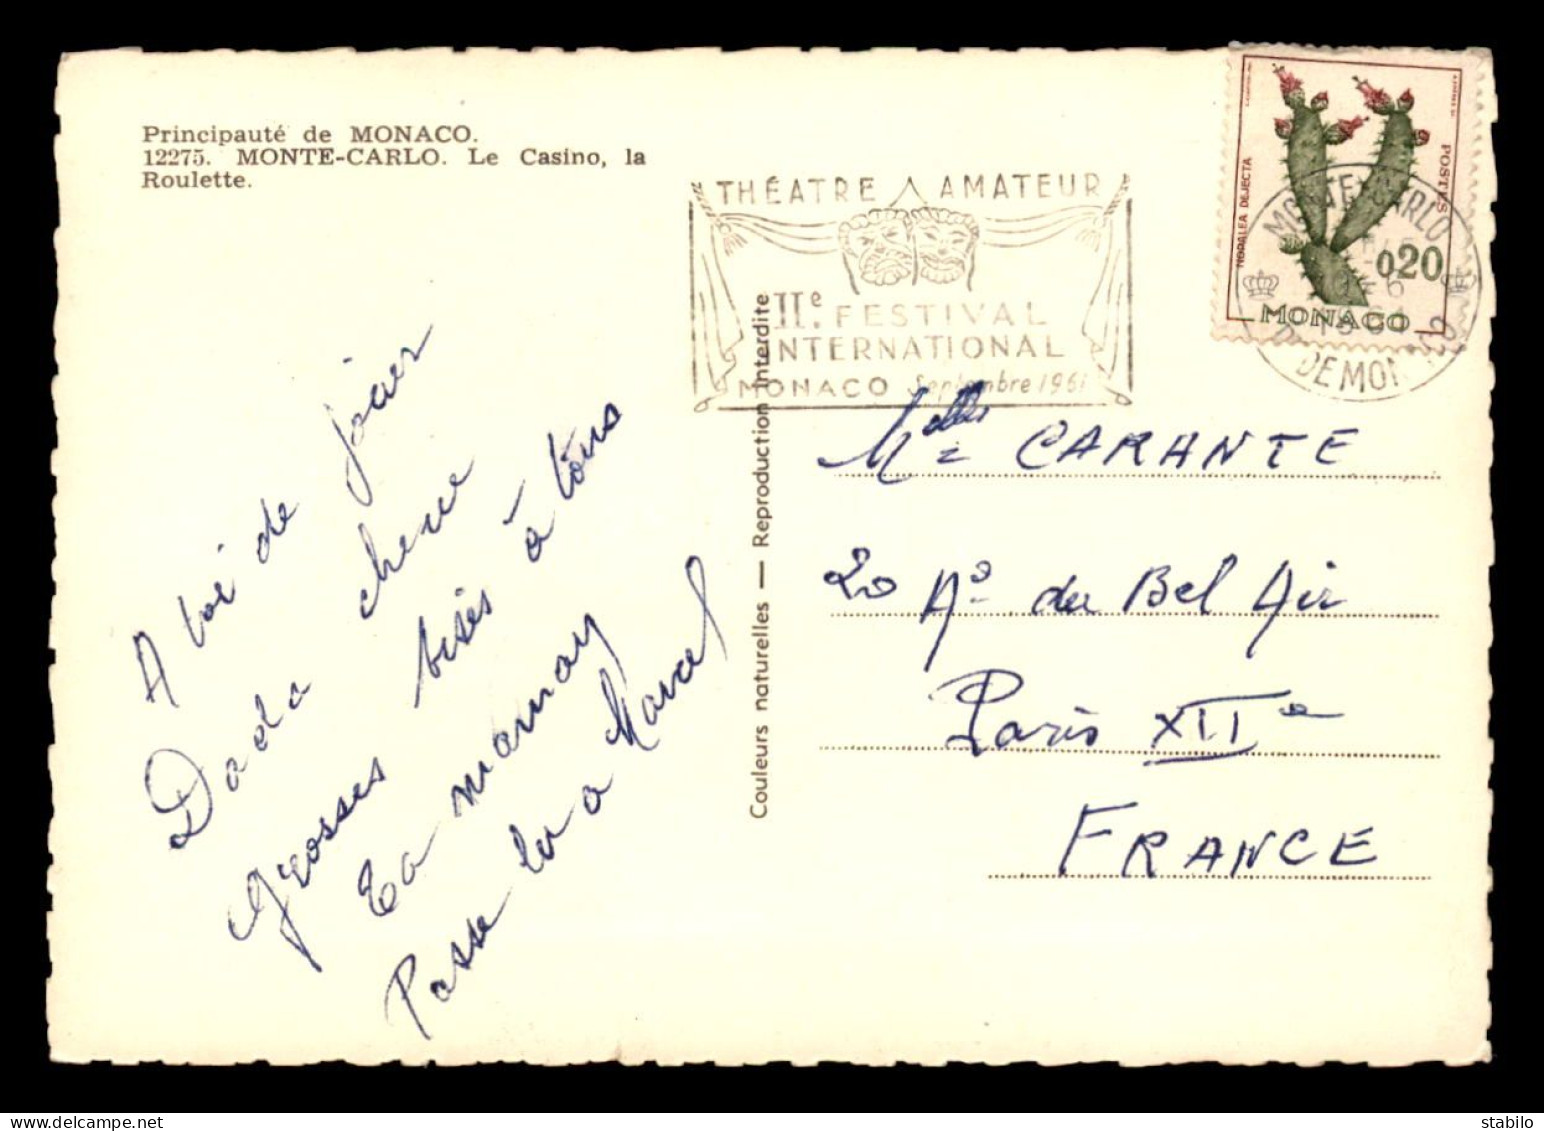 Principauté de MONACO.
12275. MONTE-CARLO. Le Casino, la
Roulette.
THÉATRE AMATEUR
IIe. FESTIVAL
INTERNATIONAL
MONACO Septembre 1961
NOPALEA DEJECTA
POSTES
0,20
MONACO
MONTE-CARLO
Couleurs naturelles — Reproduction Interdite
A toi de jouer
Dada cherie
grosses bises à tous
Ta maman
Passe la a Marcel
Melles CARANTE
20 Ae du Bel Air
Paris XIIe
FRANCE
delcampe.net
stalibu